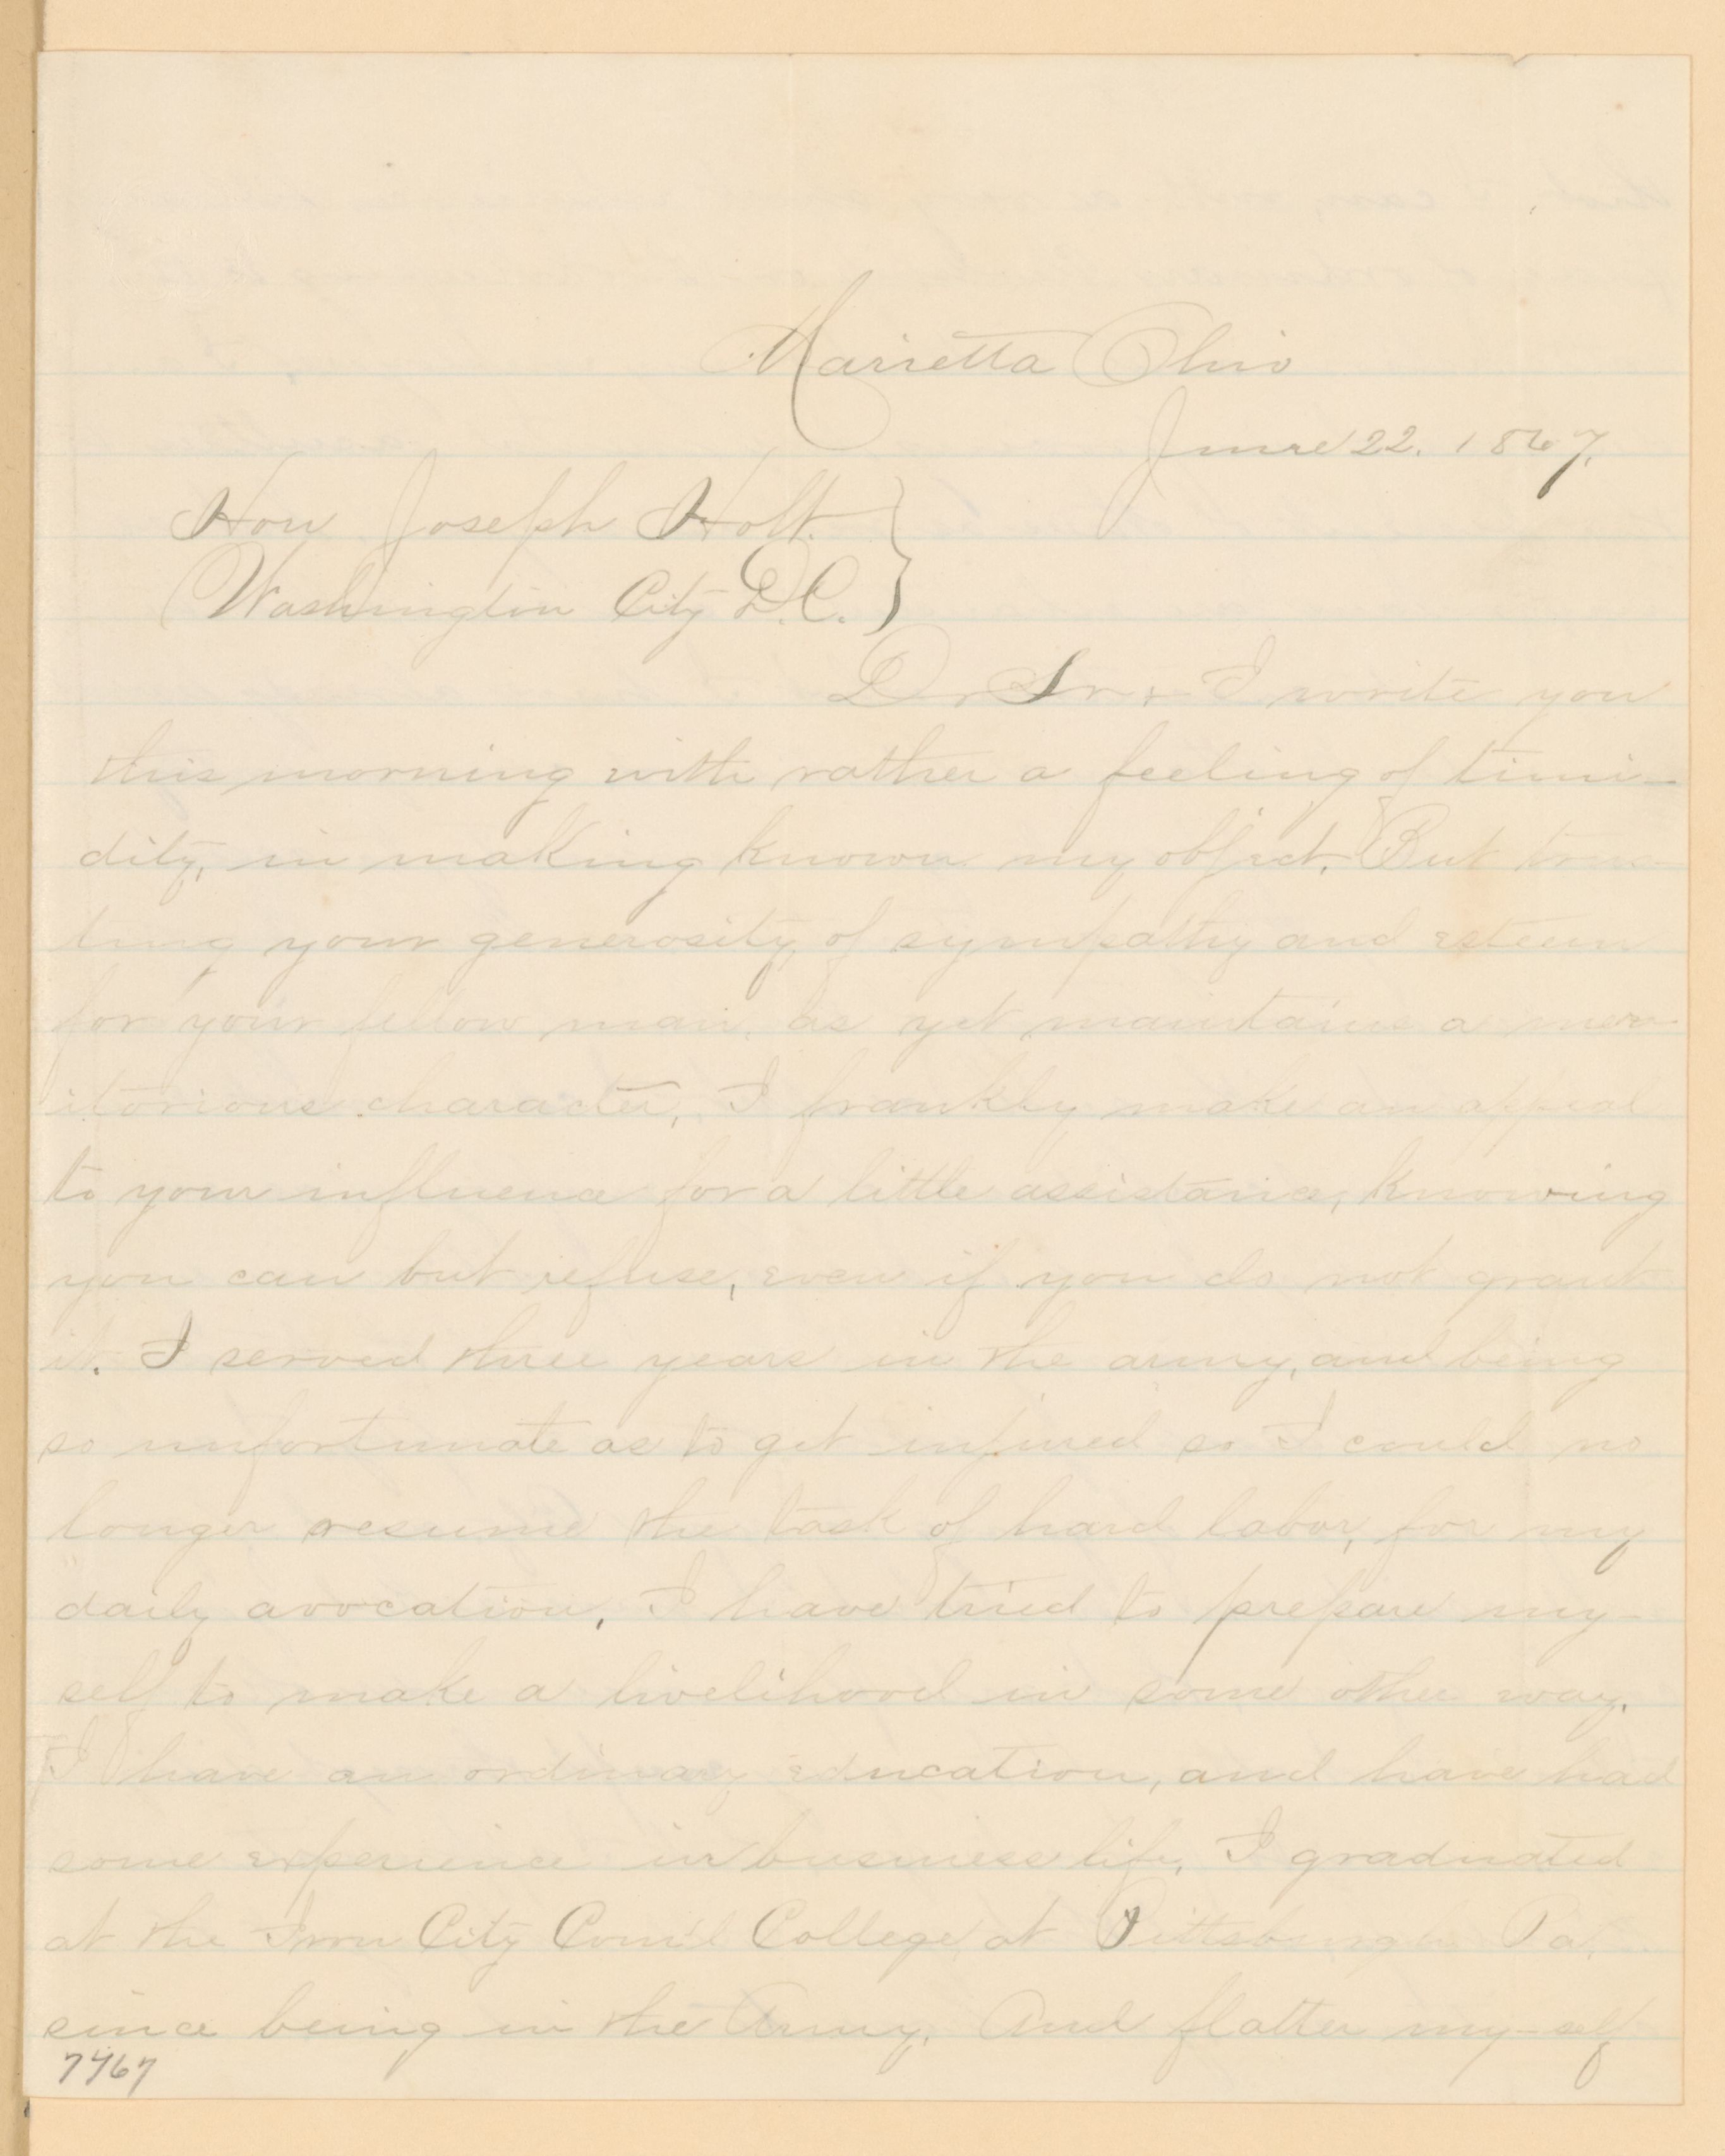 Marietta Ohio
June 22. 1867.
Hon Joseph Holt
Washington City D.C.
Dr Sir: I write you
this morning with rather a feeling of timi-
dity, in making known my object. But trus-
ting your generosity of sympathy and esteem
for your fellow man, as yet maintains a mer-
itorious character, I frankly make an appeal
to your influence for a little assistance, knowing
you can but refuse, even if you do not grant
it. I served three years in the army, and being
so unfortunate as to get injured so I could no
longer resume the task of hard labor, for my
daily avocation, I have tried to prepare my-
self to make a livelihood in some other way.
I have an ordinary education, and have had
some experience in business life, I graduated
at the Iron City Com'l College, at Pittsburgh Pa.
since being in the Army, And flatter my-self
7467